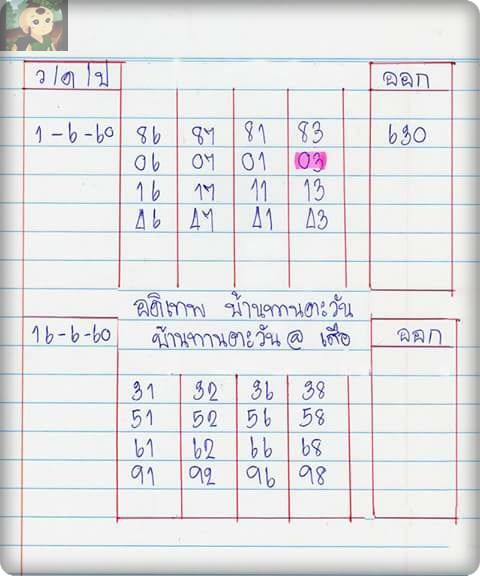 ว/ด/ป ออก
1-6-60 86 87 81 83 630
06 07 01 03
16 17 11 13
46 47 41 43
อดิเทพ บ้านทานตะวัน
16-6-60 บ้านทานตะวัน @ เสือ ออก
31 32 36 38
51 52 56 58
61 62 66 68
91 92 96 98